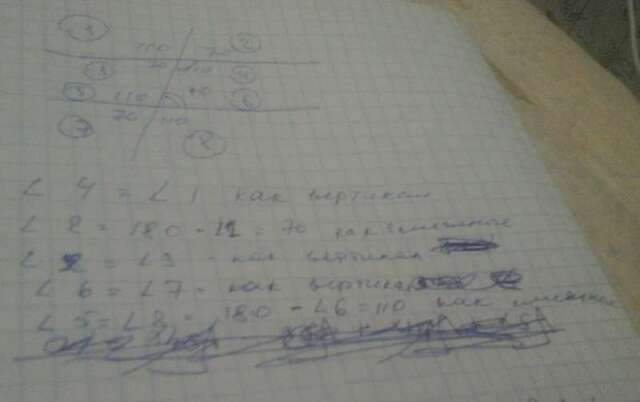 1
110 70 2
3 70 110 4
5 110 70 6
7 70 110 8
∠ 4 = ∠ 1 как вертикал
∠ 2 = 180 - ∠1 = 70 как смежное
∠ 2 = ∠3 - как вертикал
∠ 6 = ∠7 - как вертикал
∠ 5 = ∠8 = 180 - ∠6 = 110 как смежное